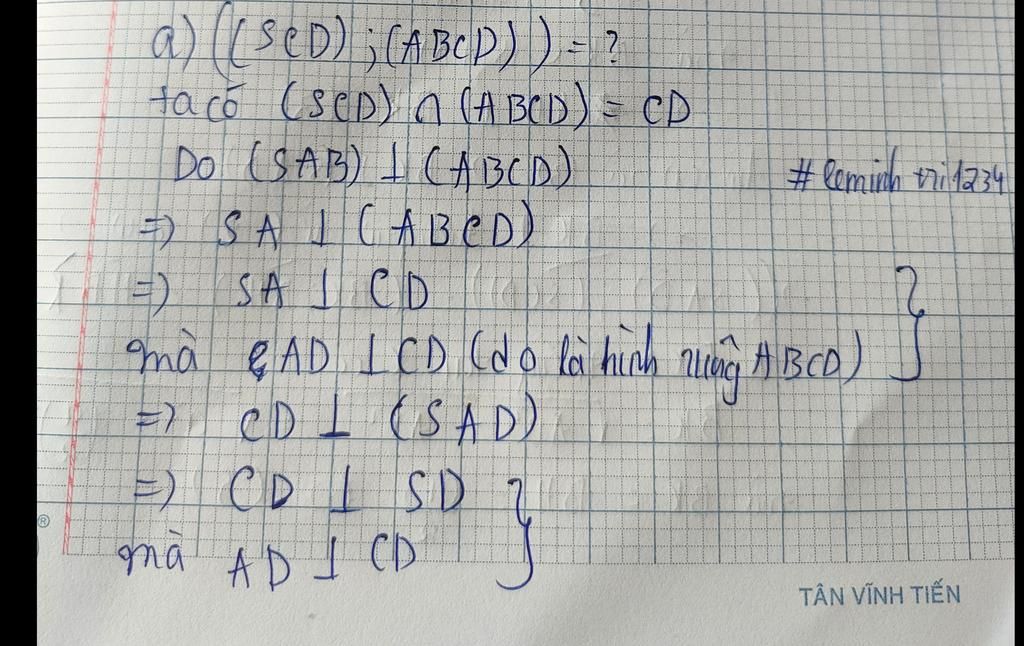 a) ((SCD) ; (ABCD)) = ?
ta có (SCD) ∩ (ABCD) = CD
Do (SAB) ⊥ (ABCD)
# leminh tri 1234
=> SA ⊥ (ABCD)
=> SA ⊥ CD
mà AD ⊥ CD (do là hình vuông ABCD) }
=> CD ⊥ (SAD)
=> CD ⊥ SD
mà AD ⊥ CD }
®
TÂN VĨNH TIẾN